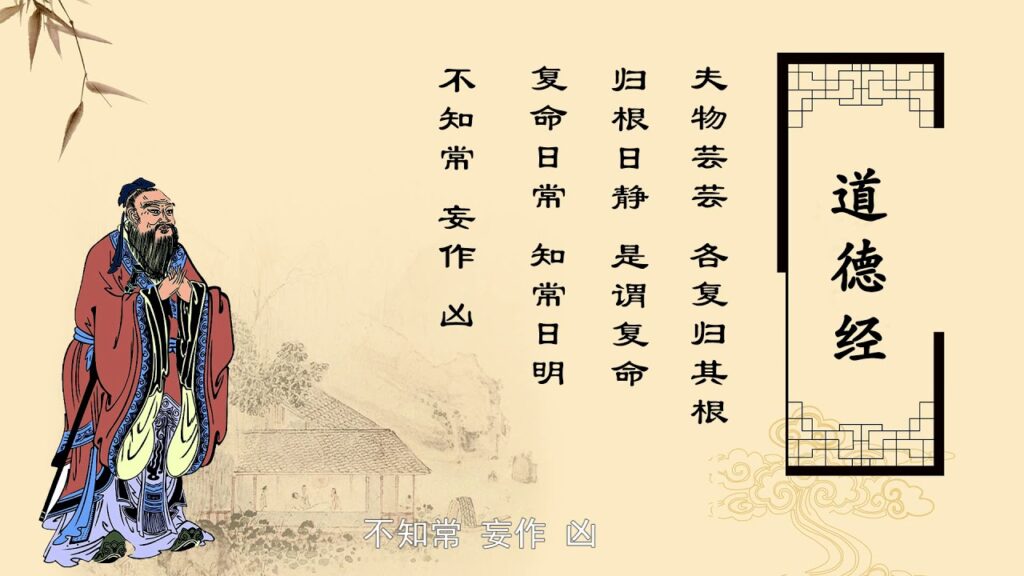 道德经
夫物芸芸 各复归其根
归根日静 是谓复命
复命日常 知常日明
不知常 妄作 凶
不知常 妄作 凶